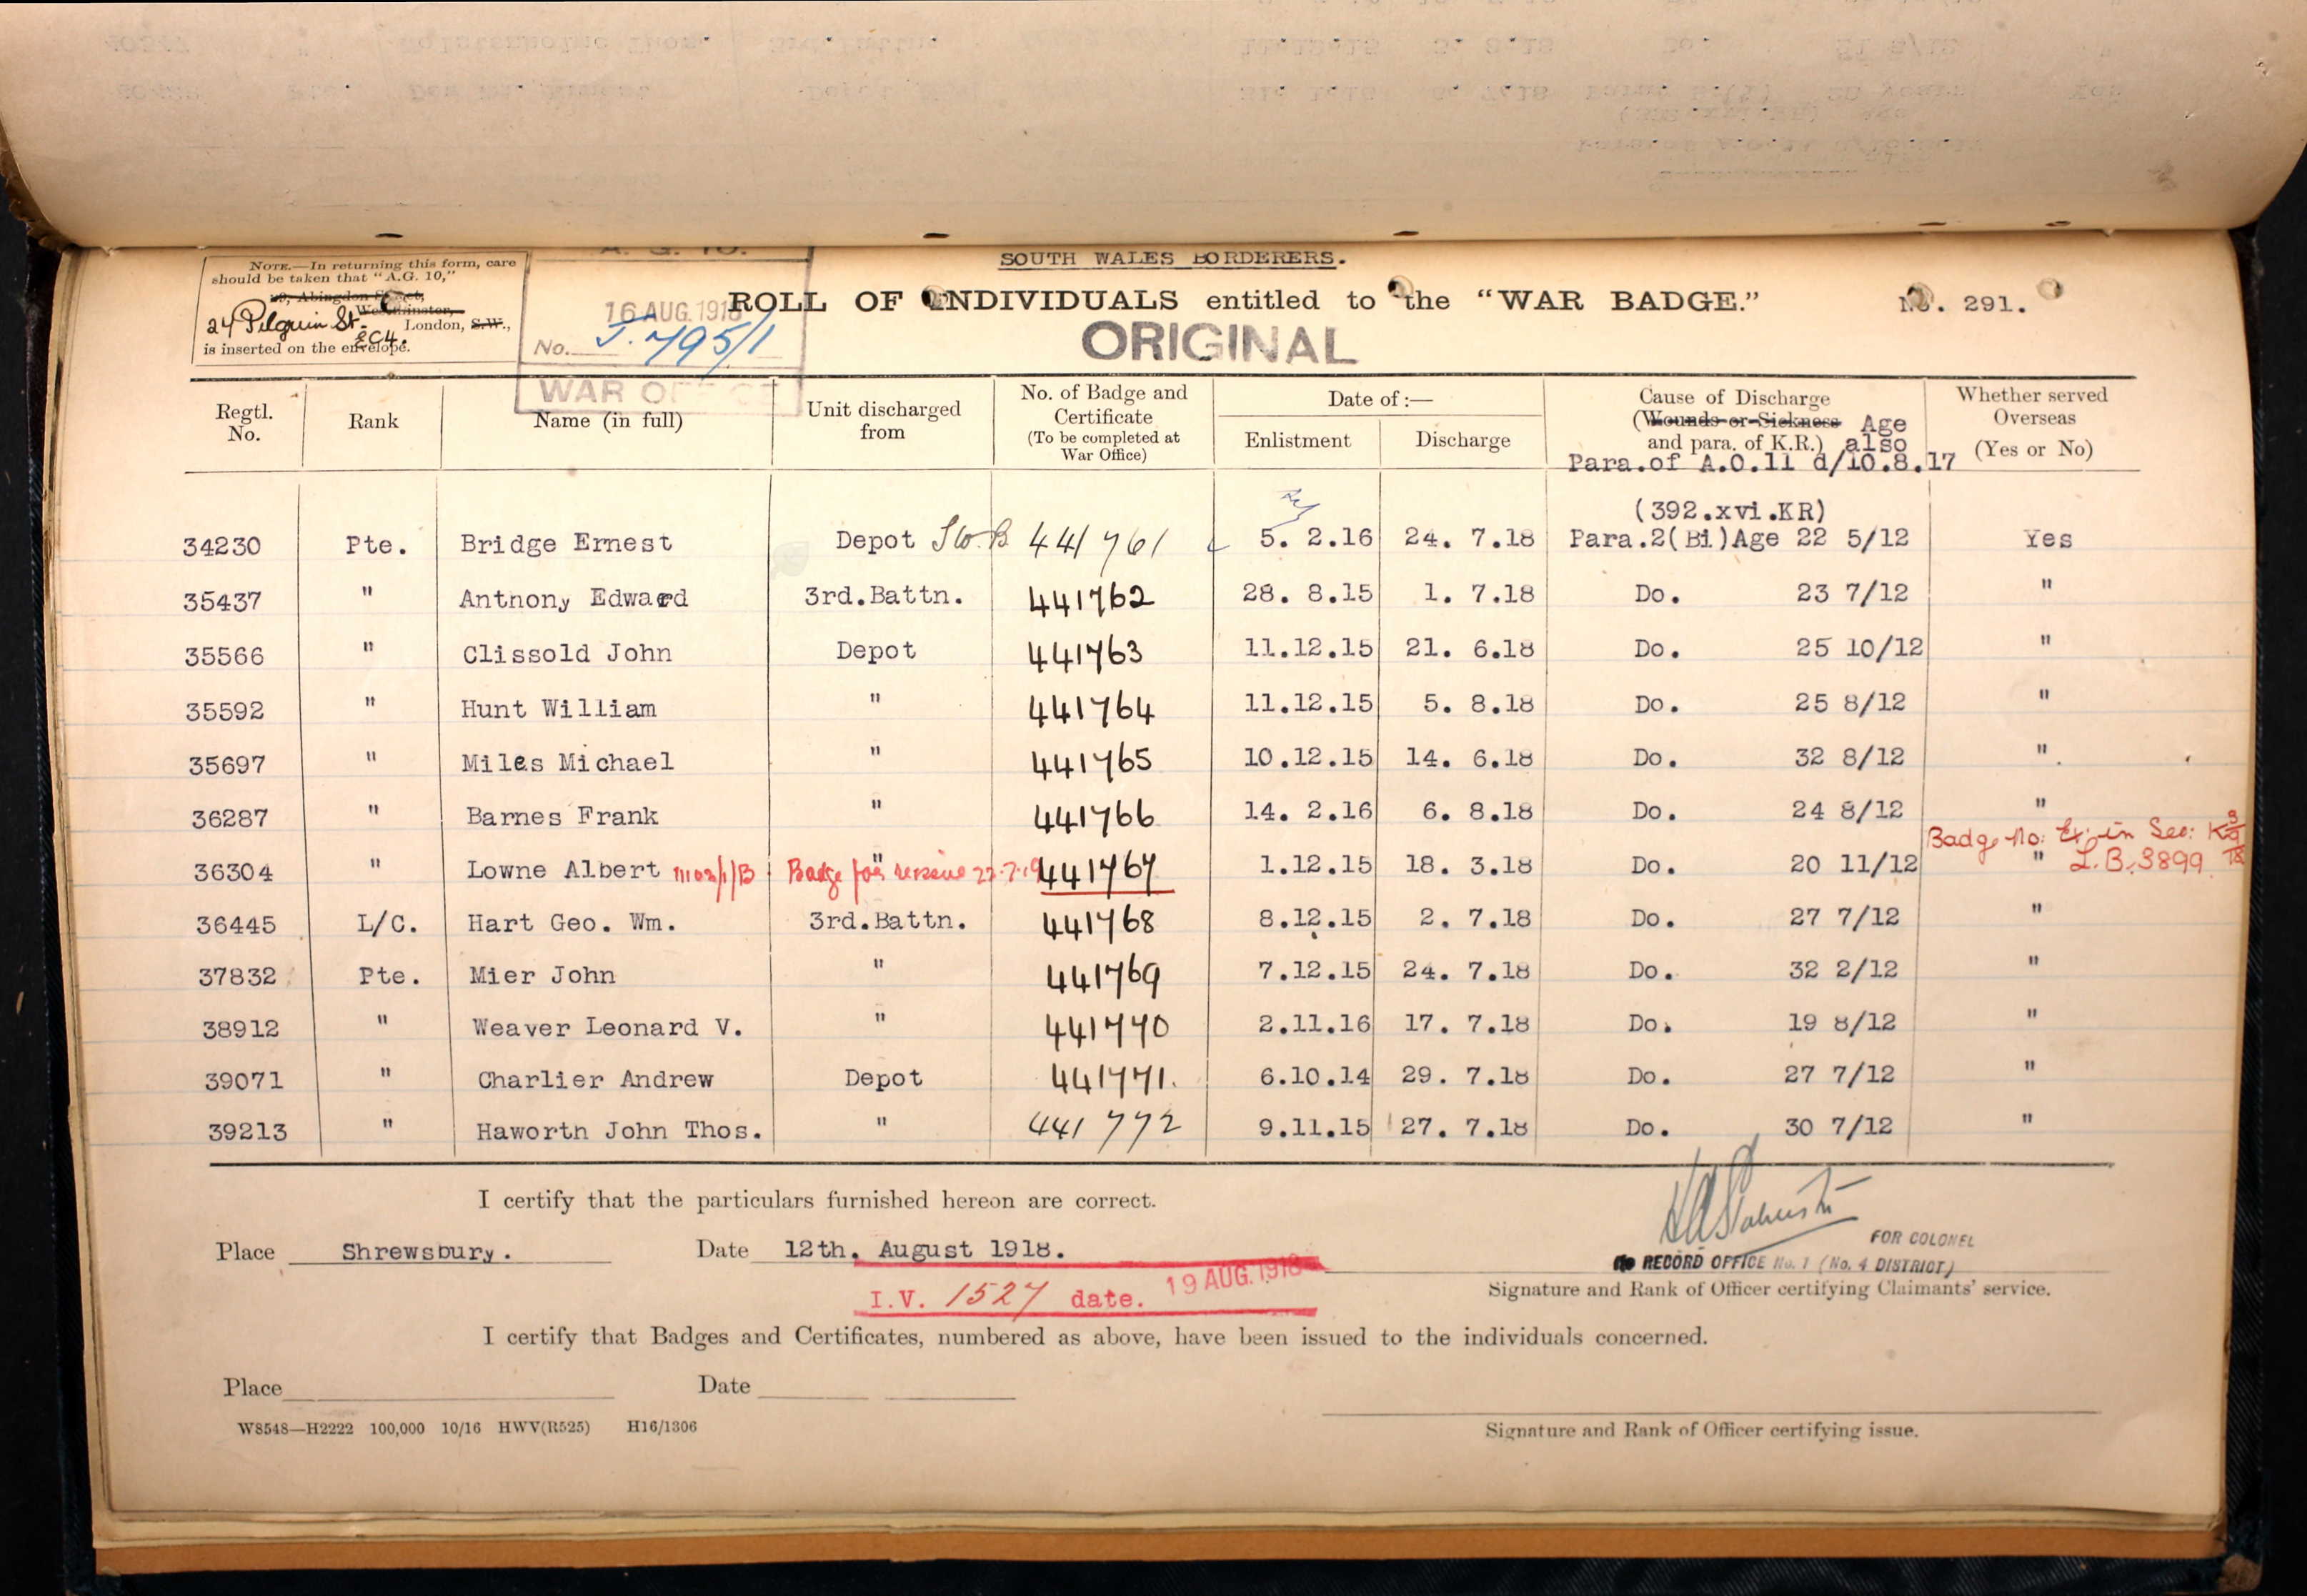 SOUTH WALES BORDERERS.
NOTE.—In returning this form, care
should be taken that "A.G. 10,"
Abingdon Street,
Westminster,
24 Pilgrim St. London, S.W.,
EC4.
is inserted on the envelope.
A. G. 10.
16 AUG. 1918
No. J.795/1
WAR OFFICE
ROLL OF INDIVIDUALS entitled to the "WAR BADGE."
No. 291.
ORIGINAL
Regtl. No. Rank Name (in full) Unit discharged from No. of Badge and Certificate (To be completed at War Office) Date of:— Enlistment Discharge Cause of Discharge (Wounds or Sickness Age and para. of K.R.) also Para.of A.O.11 d/10.8.17 Whether served Overseas (Yes or No)
(392.xvi.KR)
34230 Pte. Bridge Ernest Depot S.W.B 441761 5. 2.16 24. 7.18 Para.2(Bi)Age 22 5/12 Yes
35437 " Antnony Edward 3rd.Battn. 441762 28. 8.15 1. 7.18 Do. 23 7/12 "
35566 " Clissold John Depot 441763 11.12.15 21. 6.18 Do. 25 10/12 "
35592 " Hunt William " 441764 11.12.15 5. 8.18 Do. 25 8/12 "
35697 " Miles Michael " 441765 10.12.15 14. 6.18 Do. 32 8/12 "
36287 " Barnes Frank " 441766 14. 2.16 6. 8.18 Do. 24 8/12 "
Badge No: Ex: in Sec: K 3/9/18
36304 " Lowne Albert Badge for reissue " 441767 1.12.15 18. 3.18 Do. 20 11/12 " L.B.3899
36445 L/C. Hart Geo. Wm. 3rd.Battn. 441768 8.12.15 2. 7.18 Do. 27 7/12 "
37832 Pte. Mier John " 441769 7.12.15 24. 7.18 Do. 32 2/12 "
38912 " Weaver Leonard V. " 441770 2.11.16 17. 7.18 Do. 19 8/12 "
39071 " Charlier Andrew Depot 441771. 6.10.14 29. 7.18 Do. 27 7/12 "
39213 " Haworth John Thos. " 441772 9.11.15 27. 7.18 Do. 30 7/12 "
I certify that the particulars furnished hereon are correct.
FOR COLONEL
Place Shrewsbury. Date 12th. August 1918.
RECORD OFFICE No. 1 (No. 4 DISTRICT)
I.V. 1527 date. 19 AUG. 1918
Signature and Rank of Officer certifying Claimants' service.
I certify that Badges and Certificates, numbered as above, have been issued to the individuals concerned.
Place Date
W8548—H2222 100,000 10/16 HWV(R525) H16/1306
Signature and Rank of Officer certifying issue.